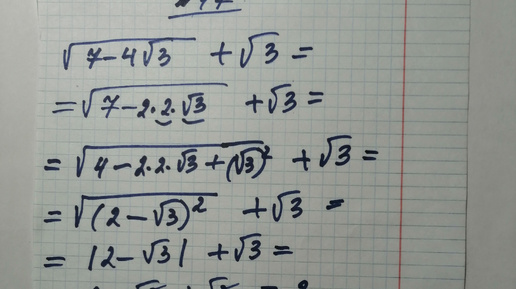 √(7-4√3) + √3 =
= √(7-2·2·√3) + √3 =
= √(4-2·2·√3+(√3)²) + √3 =
= √((2-√3)²) + √3 =
= |2-√3| + √3 =